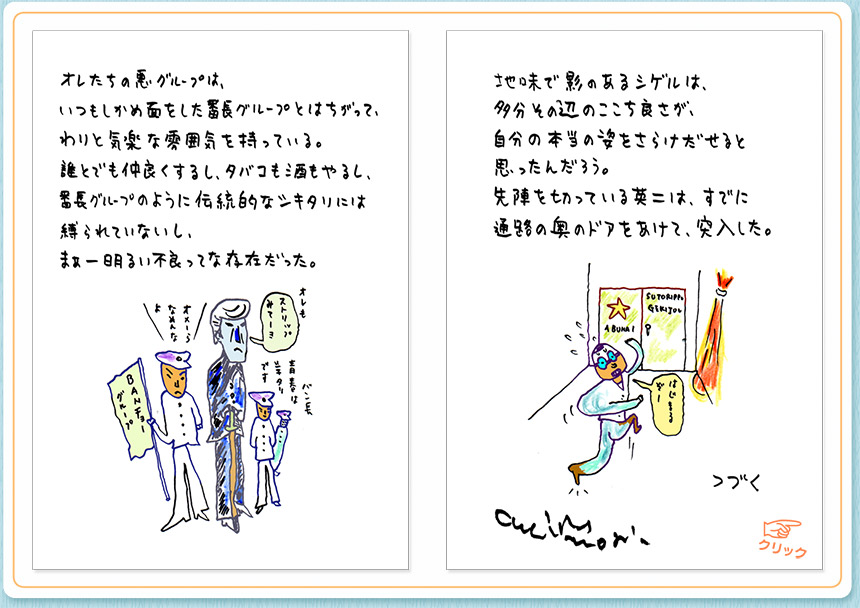 オレたちの悪グループは、
いつもしかめ面をした番長グループとはちがって、
わりと気楽な雰囲気を持っている。
誰とでも仲良くするし、タバコも酒もやるし、
番長グループのように伝統的なシキタリには
縛られていないし、
まぁ一明るい不良ってな存在だった。
オレも
ストリップ
みてーよ
オメーら
なめんな
よ
バン長、
青春は
シキタリ
です
BANチョー
グループ
地味で影のあるシゲルは、
多分その辺のここち良さが、
自分の本当の姿をさらけだせると
思ったんだろう。
先陣を切っている英二は、すでに
通路の奥のドアをあけて、突入した。
SUTORIPPU
GEKIJOU
ABUNAI
はじまる
ぞー
つづく
クリック